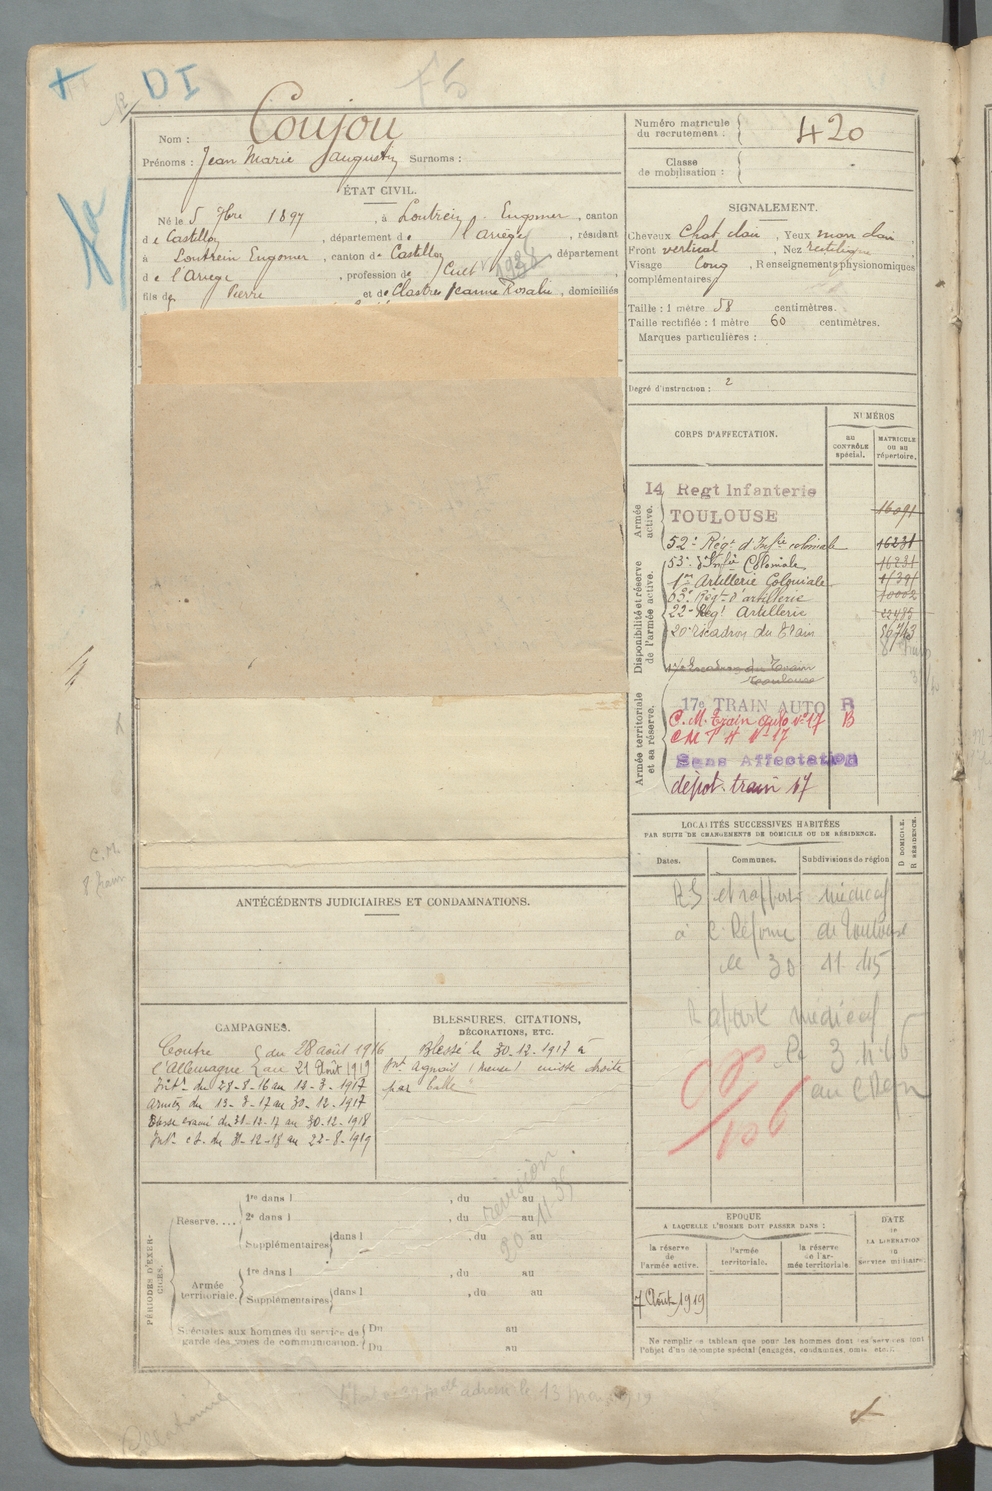 DI
Nom : Coujou
Prénoms : Jean Marie Surnoms :
ÉTAT CIVIL.
Né le 5 9bre 1897, à Loutrein, Engomer, canton
de Castillon, département de l'Ariège, résidant
à Loutrein Engomer, canton de Castillon, département
de l'Ariège, profession de Cult
fils de Pierre et de Clastres Jeanne Rosalie, domiciliés
Numéro matricule
du recrutement : 420
Classe
de mobilisation :
SIGNALEMENT.
Cheveux Chat clair, Yeux marr clair,
Front vertical, Nez rectiligne
Visage long, Renseignements physionomiques
complémentaires
Taille : 1 mètre 58 centimètres.
Taille rectifiée : 1 mètre 60 centimètres.
Marques particulières :
Degré d'instruction : 2
CORPS D'AFFECTATION.
NUMÉROS
AU CONTRÔLE spécial.
MATRICULE OU AU répertoire.
Armée active.
14 Regt Infanterie
TOULOUSE
16091
52e Régt d'Infrie coloniale 16231
Disponibilité et réserve de l'armée active.
53e d'Infie Coloniale 16231
1er Artillerie Coloniale
Régt d'artillerie 10002
22e Regt Artillerie 22485
20e Escadron du Train
17e Escadron du Train
Toulouse
Armée territoriale et sa réserve.
17e TRAIN AUTO R
C.M. Train auto No 17 B
Sans Affectation
dépot train 17
LOCALITÉS SUCCESSIVES HABITÉES
PAR SUITE DE CHANGEMENTS DE DOMICILE OU DE RÉSIDENCE.
Dates. Communes. Subdivisions de région
D DOMICILE.
R RÉSIDENCE.
RS et rapport médical
à C. Réforme de Toulouse
le 30 11 45
Rapport médical
Le 3.11.46
ANTÉCÉDENTS JUDICIAIRES ET CONDAMNATIONS.
CAMPAGNES.
Contre du 28 août 1916
l'Allemagne au 21 Août 1919
Intr du 28-8-16 au 12-3-1917
Armées du 13-3-17 au 30-12-1917
Blessé évacué du 31-12-17 au 30-12-1918
Intr du 31-12-18 au 22-8-1919
BLESSURES, CITATIONS,
DÉCORATIONS, ETC.
Blessé le 30-12-1917 à
(Meuse) cuisse droite
par balle
PÉRIODES D'EXERCICES.
Réserve....
1re dans l , du au
2e dans l , du au
Supplémentaires dans l , du au
révision
20-11-35
Armée territoriale.
1re dans l , du au
Supplémentaires dans l , du au
Spéciales aux hommes du service de
garde des voies de communication.
Du au
Du au
EPOQUE
A LAQUELLE L'HOMME DOIT PASSER DANS :
la réserve de l'armée active.
l'armée territoriale.
la réserve de l'armée territoriale
DATE
de
LA LIBÉRATION
du
service militaire.
7 Août 1919
Ne remplir ce tableau que pour les hommes dont les services font
l'objet d'un décompte spécial (engagés, condamnés, omis, etc.).